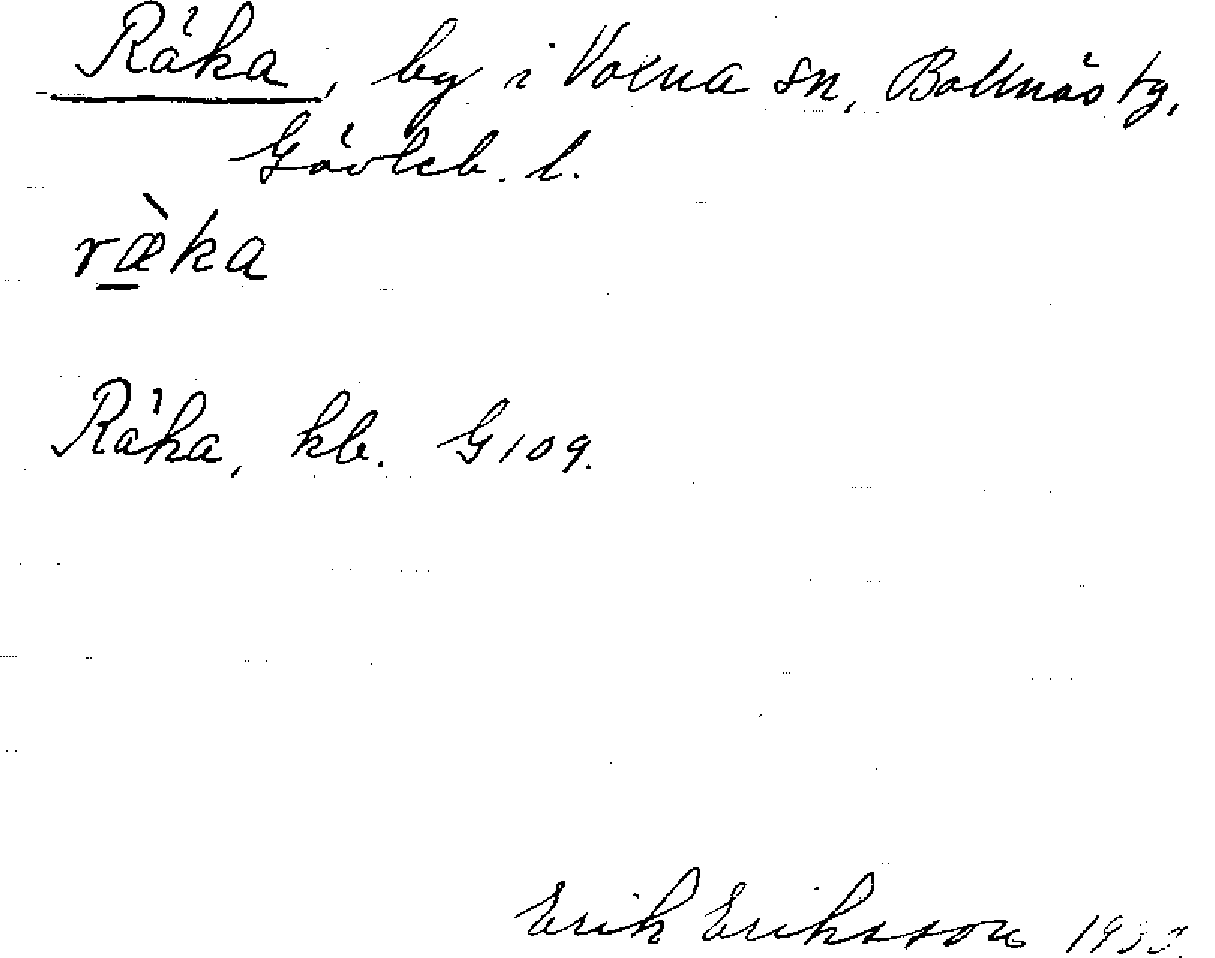 Räka, by i Voxna sn, Bollnäs tg,
Gävleb. l.
ræ̀ka
Räka, kb. G109.
Erik Eriksson